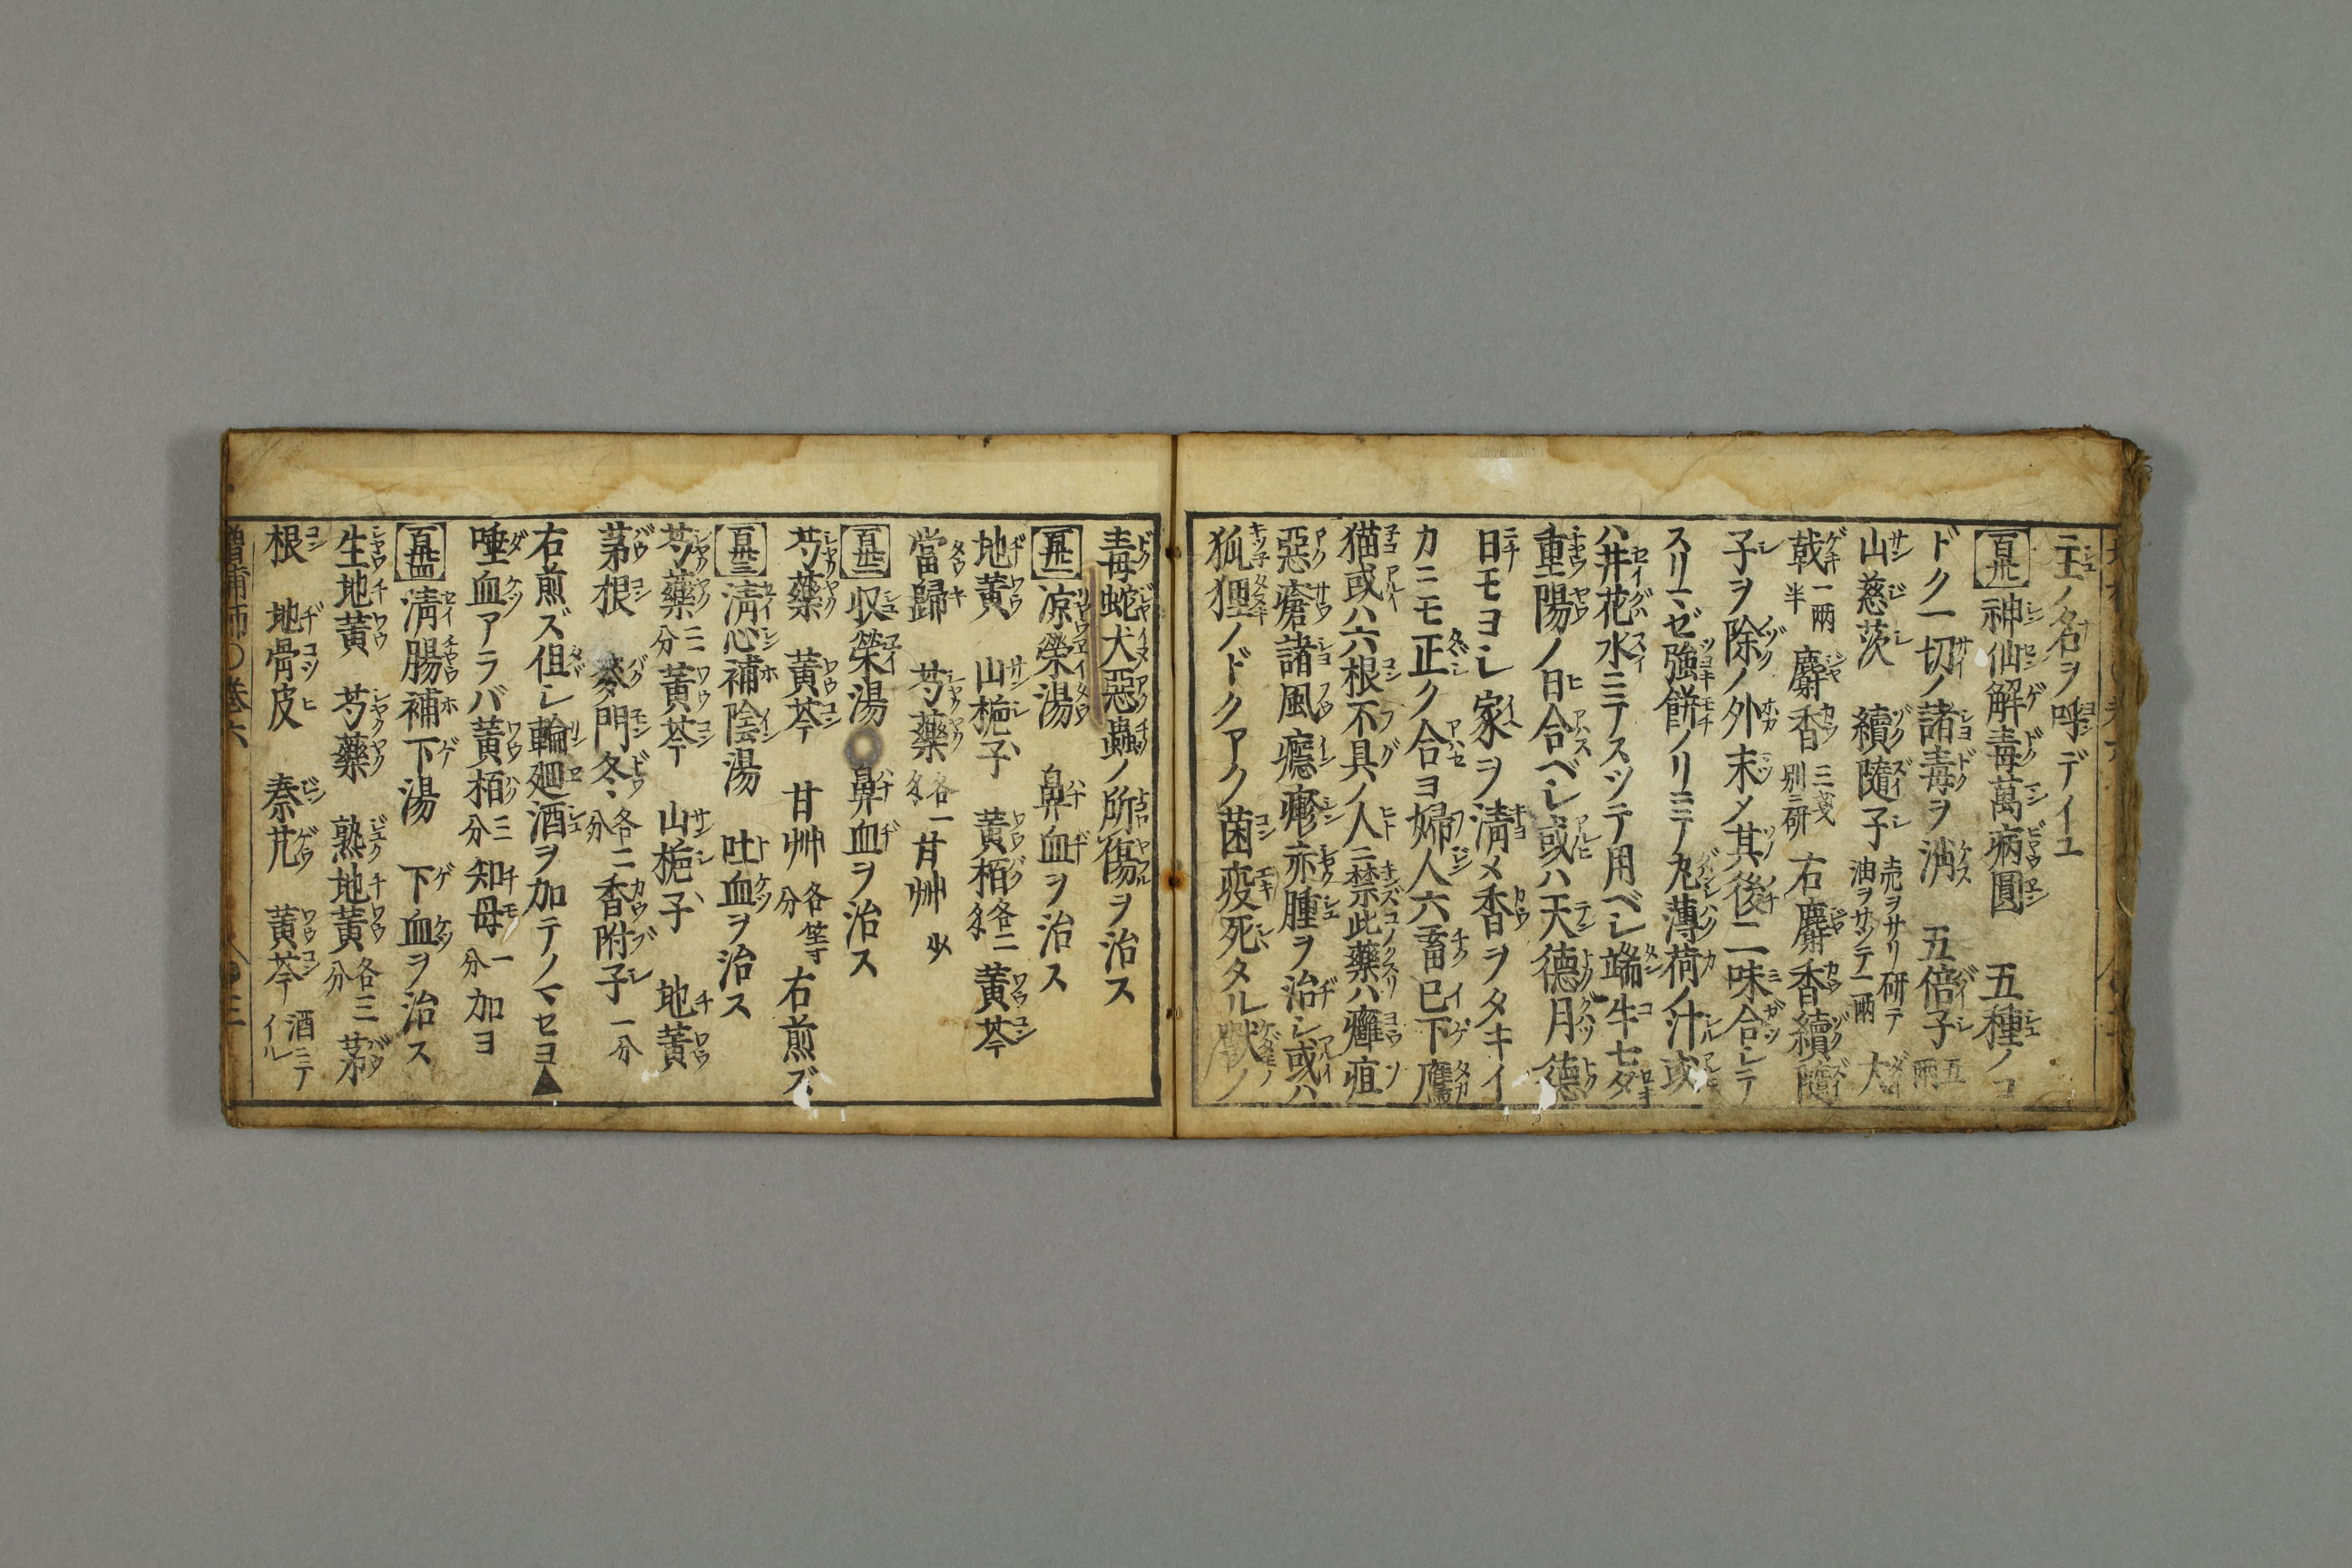 主ノ名ヲ呼デイユ
百卅一 神仙解毒萬病圓 五種ノコ
ドク一切ノ諸毒ヲ消ス 五倍子 五兩
山慈茨 續隨子 売ヲサリ研テ油ヲサツテ一兩 大
戟 一兩半 麝香 三戔別ニ研 右麝香續隨
子ヲ除ノ外末メ其後二味合レテ
スリマゼ強餅ノリニテ丸薄荷ノ汁或
ハ井花水ニテスツテ用ベレ端牛七夕
重陽ノ日合ベレ或ハ天德月德
日モヨレ家ヲ淸メ香ヲタキイ
カニモ正ク合ヨ婦人六畜巳下鷹
猫或ハ六根不具ノ人ニ禁此藥ハ癰疽
惡瘡諸風癮疹赤腫ヲ治レ或ハ
狐狸ノドクアクノ菌疫死タル獸ノ
毒蛇犬惡蟲ノ所傷ヲ治ス
百卅二 凉榮湯 鼻血ヲ治ス
地黄 山梔子 黄栢 各二 黄芩
當歸 芍藥 各一 甘艸 少
百卅二 収榮湯 鼻血ヲ治ス
芍藥 黄芩 甘艸 各等分 右煎ズ
百卅三 淸心補陰湯 吐血ヲ治ス
芍藥 二分 黄芩 山梔子 地黄
茅根 麥門冬 各二分 香附子 一分
右煎ズ但レ輪廻酒ヲ加テノマセヨ▲
唾血アラバ黄栢 三分 知母 一分 加ヨ
百卅四 淸腸補下湯 下血ヲ治ス
生地黄 芍藥 熟地黄 各三分 茅
根 地骨皮 秦艽 黄芩 酒ニテイル
增補師〇巻六 三